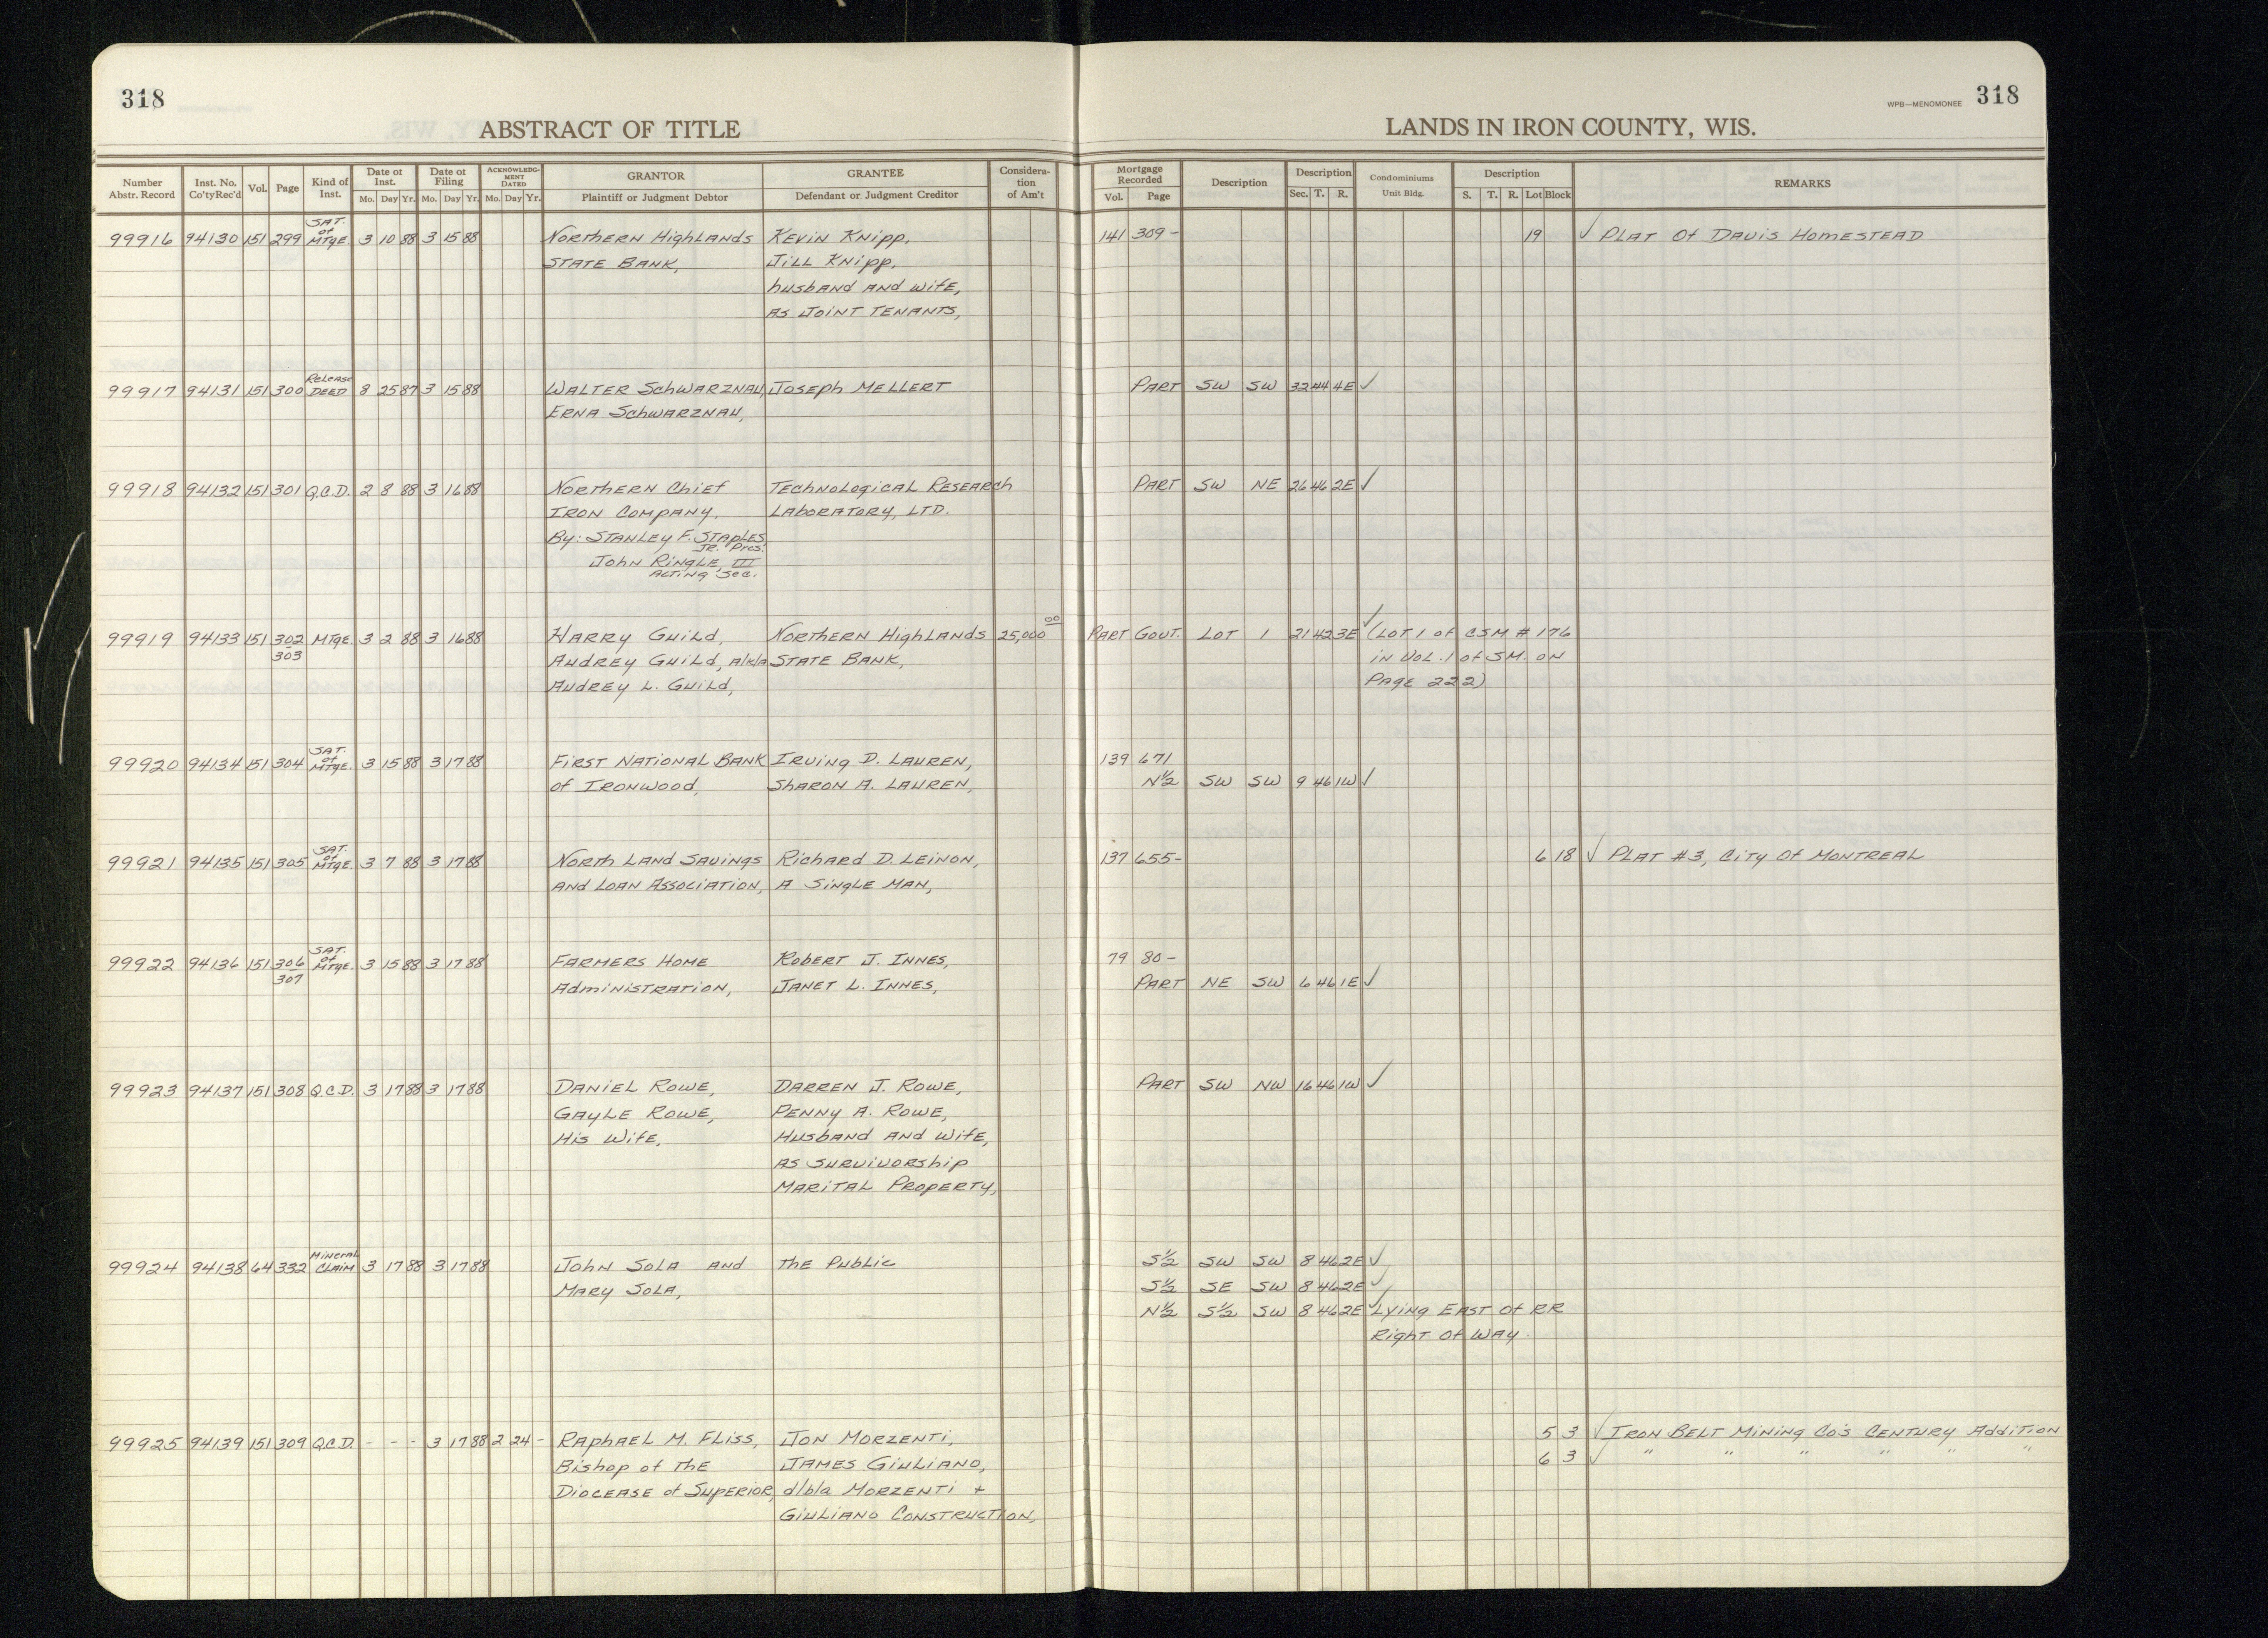 318
ABSTRACT OF TITLE
LANDS IN IRON COUNTY, WIS.
WPB—MENOMONEE 318
Number Abstr. Record Inst. No. Co'ty Rec'd Vol. Page Kind of Inst. Date of Inst. Mo. Day Yr. Date of Filing Mo. Day Yr. ACKNOWLEDGMENT DATED Mo. Day Yr. GRANTOR Plaintiff or Judgment Debtor GRANTEE Defendant or Judgment Creditor Consideration of Am't Mortgage Recorded Vol. Page Description Description Sec. T. R. Condominiums Unit Bldg. Description S. T. R. Lot Block REMARKS
SAT. of
99916 94130 151 299 MTGE. 3 10 88 3 15 88 Northern Highlands Kevin Knipp, 141 309- 19 ✓ Plat of Davis Homestead
State Bank, Jill Knipp,
husband and wife,
as joint tenants,
Release
99917 94131 151 300 DEED 8 25 87 3 15 88 Walter Schwarznau, Joseph Mellert Part SW SW 32 44 4E ✓
Erna Schwarznau,
99918 94132 151 301 Q.C.D. 2 8 88 3 16 88 Northern Chief Technological Research Part SW NE 26 46 2E ✓
Iron Company, Laboratory, Ltd.
By: Stanley F. Staples
Jr. Pres.
John Ringle, III
Acting Sec.
99919 94133 151 302 MTGE. 3 2 88 3 16 88 Harry Guild, Northern Highlands 25,000 00 Part Govt. Lot 1 21 42 3E ✓ (Lot 1 of CSM # 176
303 Audrey Guild, a/k/a State Bank, in Vol. 1 of SM. on
Audrey L. Guild, Page 222)
SAT. of
99920 94134 151 304 MTGE. 3 15 88 3 17 88 First National Bank Irving D. Lauren, 139 671
of Ironwood, Sharon A. Lauren, N½ SW SW 9 46 1W ✓
SAT. of
99921 94135 151 305 MTGE. 3 7 88 3 17 88 North Land Savings Richard D. Leinon, 137 655- 6 18 ✓ Plat #3, City of Montreal
and Loan Association, a single man,
SAT. of
99922 94136 151 306 MTGE. 3 15 88 3 17 88 Farmers Home Robert J. Innes, 79 80-
307 Administration, Janet L. Innes, Part NE SW 6 46 1E ✓
99923 94137 151 308 Q.C.D. 3 17 88 3 17 88 Daniel Rowe, Darren J. Rowe, Part SW NW 16 46 1W ✓
Gayle Rowe, Penny A. Rowe,
His Wife, Husband and Wife,
as survivorship
Marital Property,
Mineral
99924 94138 64 332 Claim 3 17 88 3 17 88 John Sola and The Public S½ SW SW 8 46 2E ✓
Mary Sola, S½ SE SW 8 46 2E ✓
N½ S½ SW 8 46 2E ✓ Lying East of RR
Right of Way.
99925 94139 151 309 Q.C.D. - - - 3 17 88 2 24 - Raphael M. Fliss, Jon Morzenti, 5 3 ✓ Iron Belt Mining Co's Century Addition
Bishop of the James Giuliano, 6 3 ✓ " " " " " "
Diocease of Superior, d/b/a Morzenti +
Giuliano Construction,